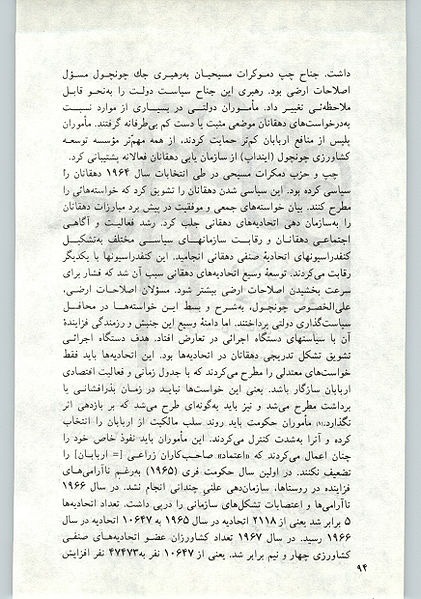 داشت. جناح چپ دموکرات مسیحیان به‌رهبری جك چونچول مسؤل
اصلاحات ارضی بود. رهبری این جناح سیاست دولت را به‌نحو قابل
ملاحظه‌ئی تغییر داد. مأموران دولتی در بسیاری از موارد نسبت
به‌درخواست‌های دهقانان موضعی مثبت یا دست کم بی‌طرفانه گرفتند. مأموران
پلیس از منافع اربابان کم‌تر حمایت کردند. از همه مهم‌تر مؤسسه توسعه
کشاورزی چونچول (اینداپ) از سازمان یابی دهقانان فعالانه پشتیبانی کرد.
چپ و حزب دمکرات مسیحی در طی انتخابات سال ۱۹۶۴ دهقانان را
سیاسی کرده بود. این سیاسی شدن دهقانان را تشویق کرد که خواسته‌هائی را
مطرح کنند. بیان خواسته‌های جمعی و موفقیت در پیش برد مبارزات دهقانان
را به‌سازمان دهی اتحادیه‌های دهقانی جلب کرد. رشد فعالیت و آگاهی
اجتماعی دهقانان و رقابت سازمانهای سیاسی مختلف به‌تشکیل
کنفدراسیونهای اتحادیهٔ صنفی دهقانی انجامید. این کنفدراسیونها با یکدیگر
رقابت می‌کردند. توسعهٔ وسیع اتحادیه‌های دهقانی سبب آن شد که فشار برای
سرعت بخشیدن اصلاحات ارضی بیشتر شود. مسؤلان اصلاحات ارضی،
علی‌الخصوص چونچول، به‌شرح و بسط این خواسته‌ها در محافل
سیاست‌گذاری دولتی پرداختند. اما دامنهٔ وسیع این جنبش و رزمندگی فزایندهٔ
آن با سیاستهای دستگاه اجرائی در تعارض افتاد. هدف دستگاه اجرائی
تشویق تشکل تدریجی دهقانان در اتحادیه‌ها بود. این اتحادیه‌ها باید فقط
خواست‌های معتدلی را مطرح می‌کردند که با جدول زمانی و فعالیت اقتصادی
اربابان سازگار باشد. یعنی این خواست‌ها نباید در زمان بذرافشانی یا
برداشت مطرح می‌شد و نیز باید به‌گونه‌ای طرح می‌شد که بر بازدهی اثر
نگذارد.(۹) مأموران حکومت باید روند سلب مالکیت از اربابان را انتخاب
کرده و آنرا به‌شدت کنترل می‌کردند. این مأموران باید نفوذ خاص خود را
چنان اعمال می‌کردند که «اعتماد» صاحب‌کاران زراعی [= اربابان] را
تضعیف نکنند. در اولین سال حکومت فری (۱۹۶۵) به‌رغم ناآرامی‌های
فزاینده در روستاها، سازمان‌دهی علنی چندانی انجام نشد. در سال ۱۹۶۶
ناآرامی‌ها و اعتصابات تشکل‌های سازمانی را درپی داشت. تعداد اتحادیه‌ها
۵ برابر شد یعنی از ۲۱۱۸ اتحادیه در سال ۱۹۶۵ به ۱۰۶۴۷ اتحادیه در سال
۱۹۶۶ رسید. در سال ۱۹۶۷ تعداد کشاورزان عضو اتحادیه‌های صنفی
کشاورزی چهار و نیم برابر شد. یعنی از ۱۰۶۴۷ نفر به‌۴۷۴۷۳ نفر افزایش
۹۴